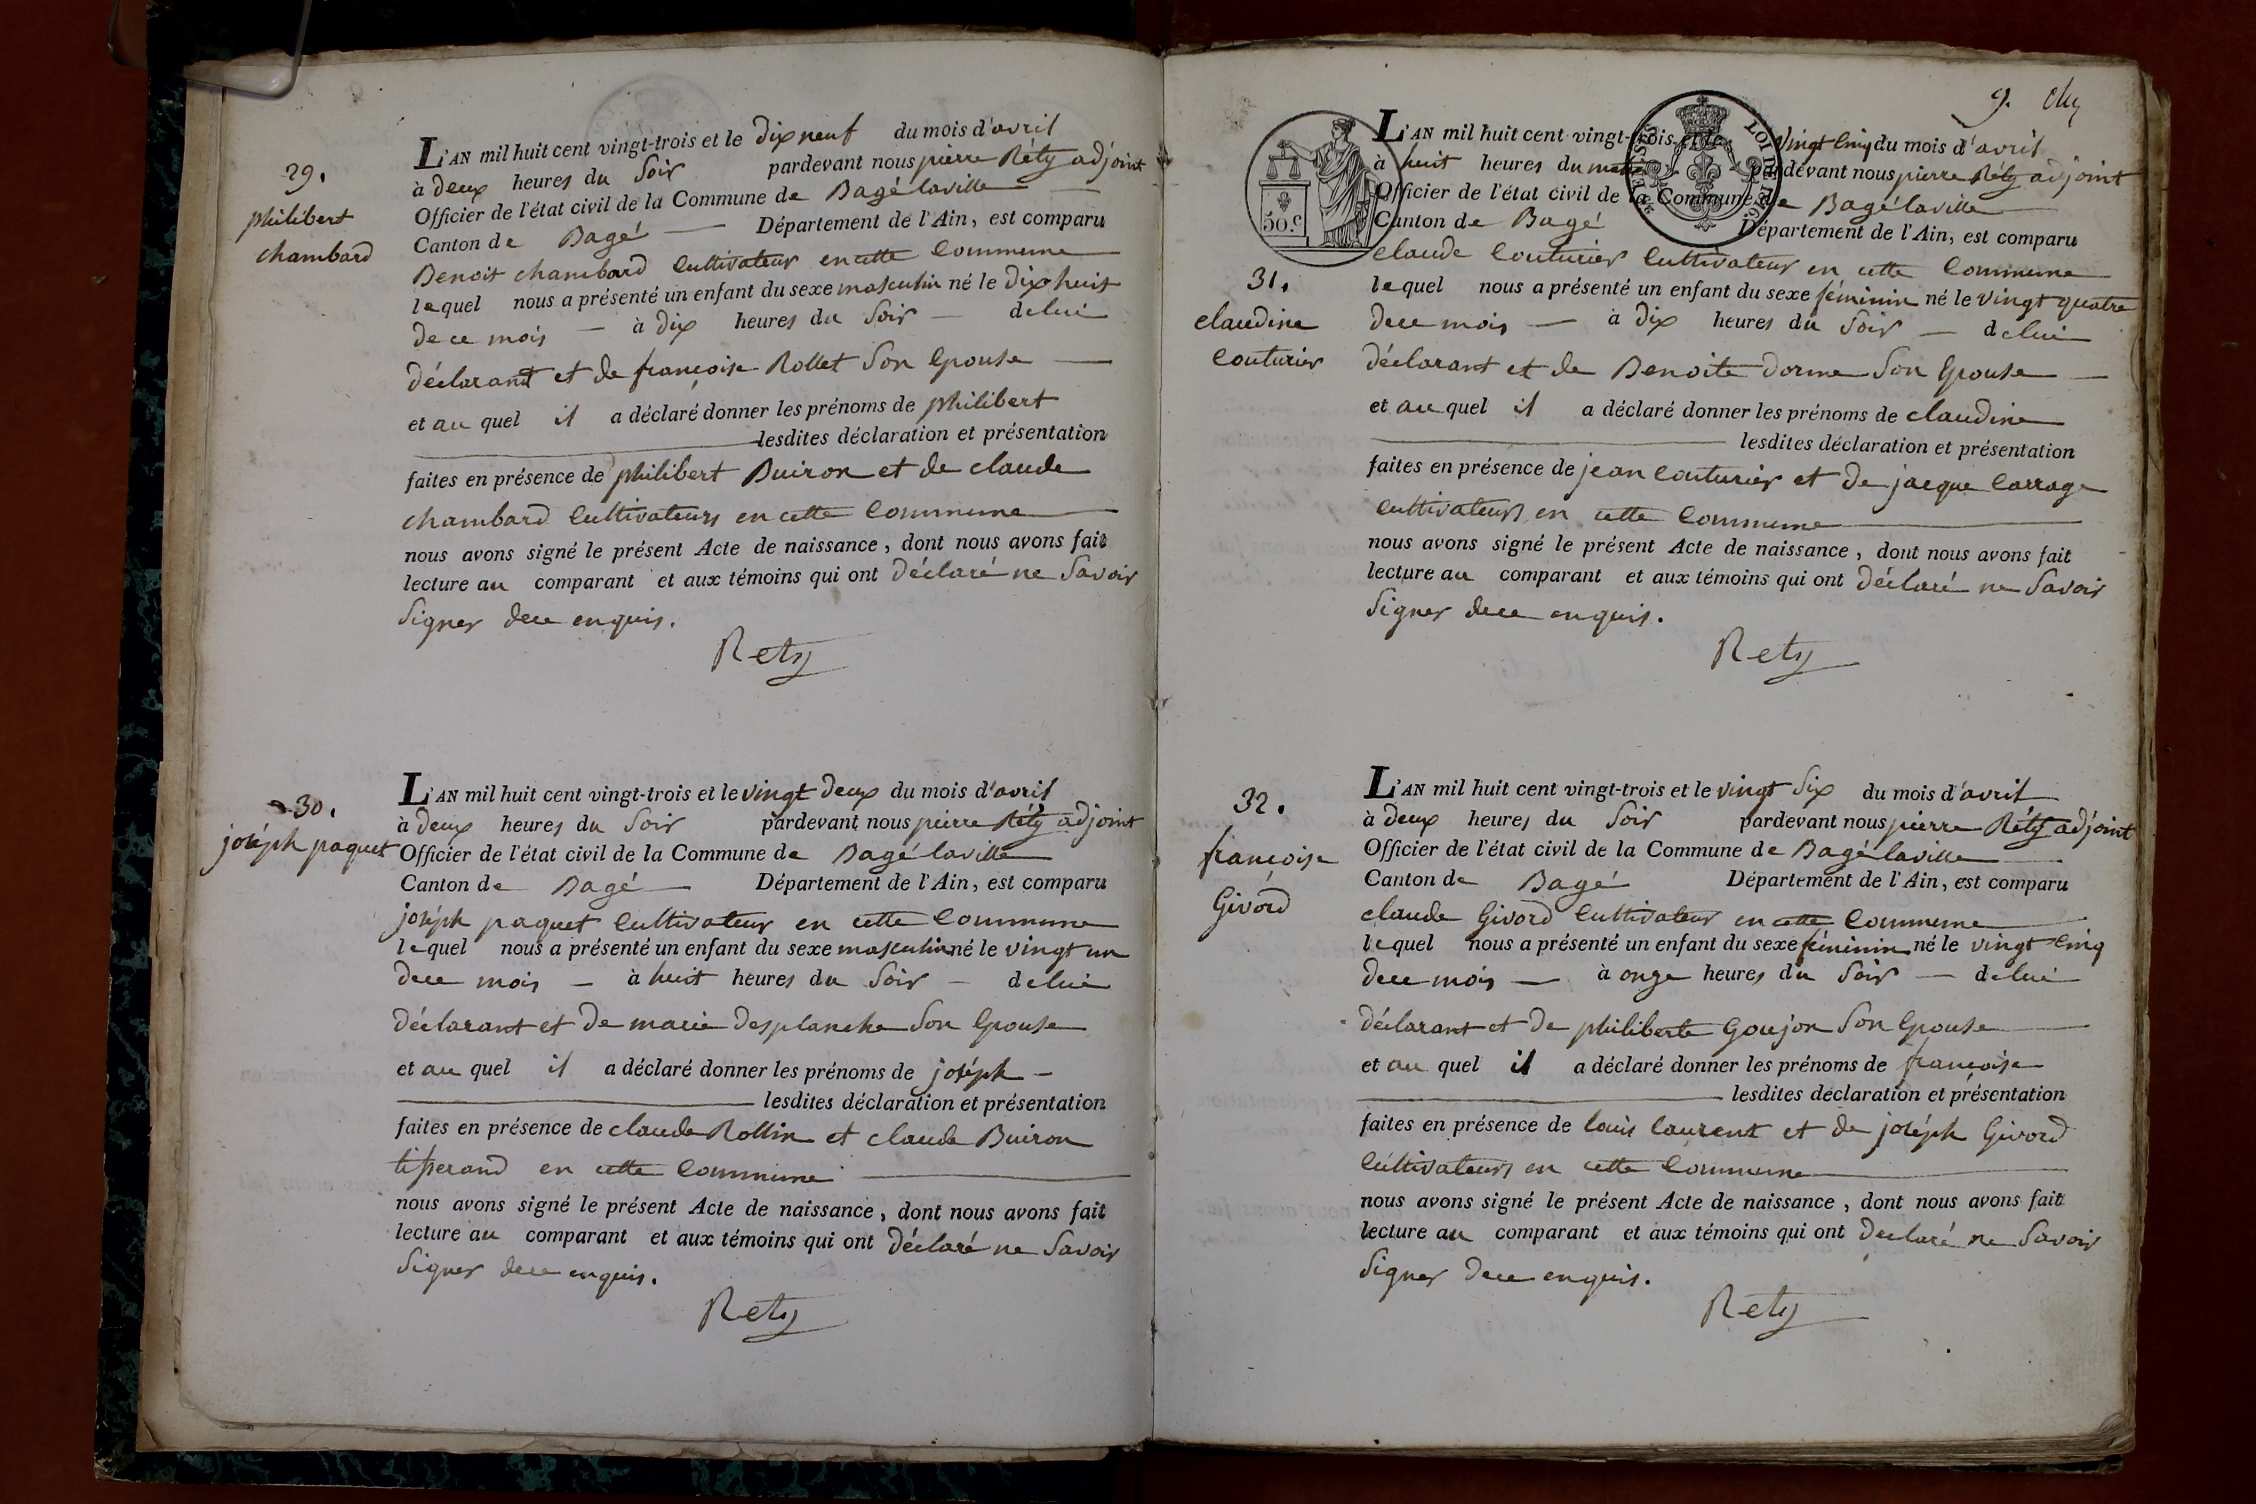 29.
philibert
chambard
L'AN mil huit cent vingt-trois et le dix neuf du mois d'avril
à deux heures du soir pardevant nous pierre Réty adjoint
Officier de l'état civil de la Commune de Bagé laville
Canton de Bagé Département de l'Ain, est comparu
Benoit chambard cultivateur en cette commune
lequel nous a présenté un enfant du sexe masculin né le dix huit
de ce mois à dix heures du soir de lui
déclarant et de françoise Rollet son épouse
et au quel il a déclaré donner les prénoms de philibert
lesdites déclaration et présentation
faites en présence de philibert Buiron et de claude
chambard cultivateurs en cette commune
nous avons signé le présent Acte de naissance, dont nous avons fait
lecture au comparant et aux témoins qui ont déclaré ne savoir
signer de ce enquis.
Rety
30.
joséph paquet
L'AN mil huit cent vingt-trois et le vingt deux du mois d'avril
à deux heures du soir pardevant nous pierre Réty adjoint
Officier de l'état civil de la Commune de Bagé laville
Canton de Bagé Département de l'Ain, est comparu
joséph paquet cultivateur en cette commune
lequel nous a présenté un enfant du sexe masculin né le vingt un
de ce mois à huit heures du soir de lui
déclarant et de marie desplanche son épouse
et au quel il a déclaré donner les prénoms de joséph
lesdites déclaration et présentation
faites en présence de claude Rollin et claude Buiron
tisserand en cette commune
nous avons signé le présent Acte de naissance, dont nous avons fait
lecture au comparant et aux témoins qui ont déclaré ne savoir
signer de ce enquis.
Rety
9.
50 c
LOI DE 1816
31.
claudine
couturier
L'AN mil huit cent vingt-trois et le vingt cinq du mois d'avril
à huit heures du matin pardevant nous pierre Réty adjoint
Officier de l'état civil de la Commune de Bagé laville
Canton de Bagé Département de l'Ain, est comparu
claude couturier cultivateur en cette commune
lequel nous a présenté un enfant du sexe féminin né le vingt quatre
de ce mois à dix heures du soir de lui
déclarant et de Benoite dorme son épouse
et au quel il a déclaré donner les prénoms de claudine
lesdites déclaration et présentation
faites en présence de jean couturier et de jacque carrage
cultivateurs en cette commune
nous avons signé le présent Acte de naissance, dont nous avons fait
lecture au comparant et aux témoins qui ont déclaré ne savoir
signer de ce enquis.
Rety
32.
françoise
Givord
L'AN mil huit cent vingt-trois et le vingt six du mois d'avril
à deux heures du soir pardevant nous pierre Réty adjoint
Officier de l'état civil de la Commune de Bagé laville
Canton de Bagé Département de l'Ain, est comparu
claude Givord cultivateur en cette commune
lequel nous a présenté un enfant du sexe féminin né le vingt cinq
de ce mois à onze heures du soir de lui
déclarant et de philiberte Goujon son épouse
et au quel il a déclaré donner les prénoms de françoise
lesdites déclaration et présentation
faites en présence de louis laurent et de joséph Givord
cultivateurs en cette commune
nous avons signé le présent Acte de naissance, dont nous avons fait
lecture au comparant et aux témoins qui ont déclaré ne savoir
signer de ce enquis.
Rety